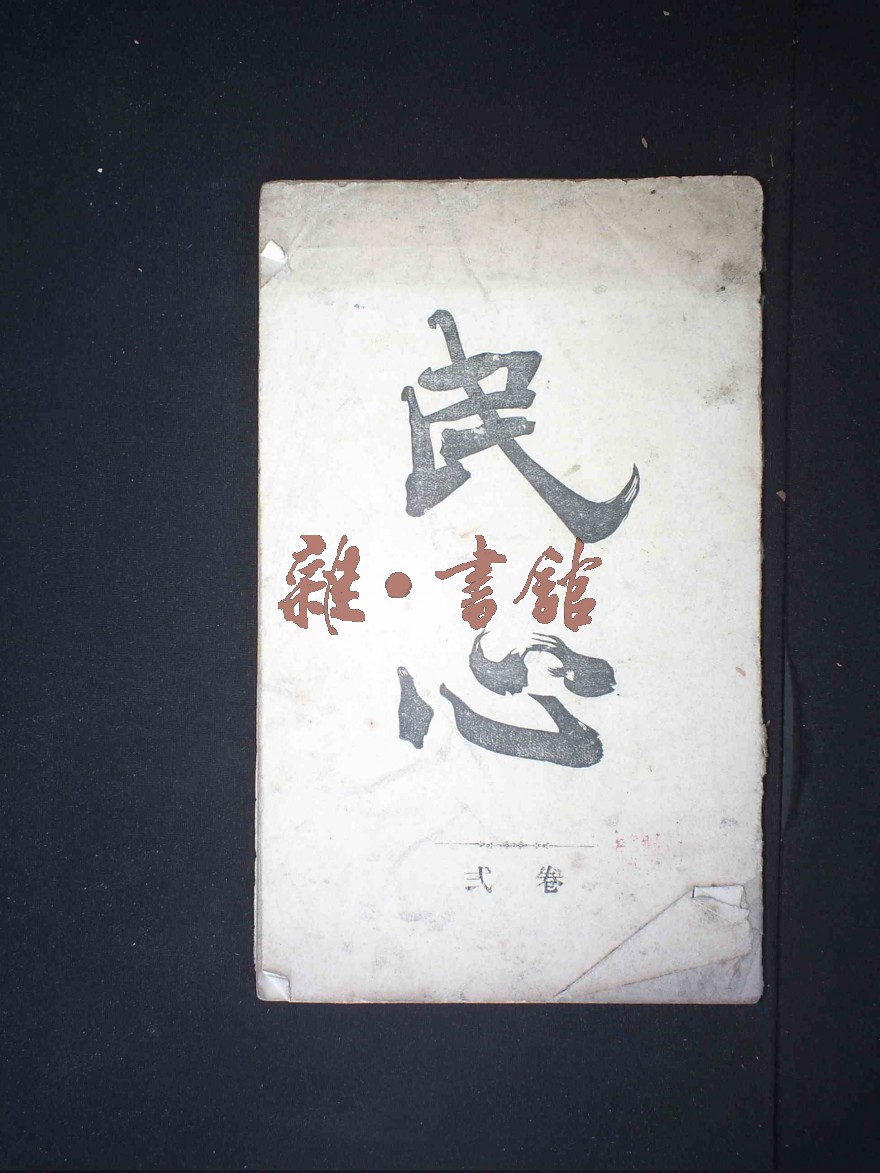 民心
雜·書館
卷弍